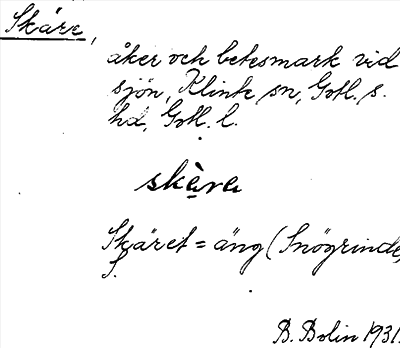 Skäre,
åker och betesmark vid
sjön, Klinte sn, Gotl. s.
hd, Gotl. l.
skära
Skäret = äng (Snögrinde,
S.
B. Bolin 1931.